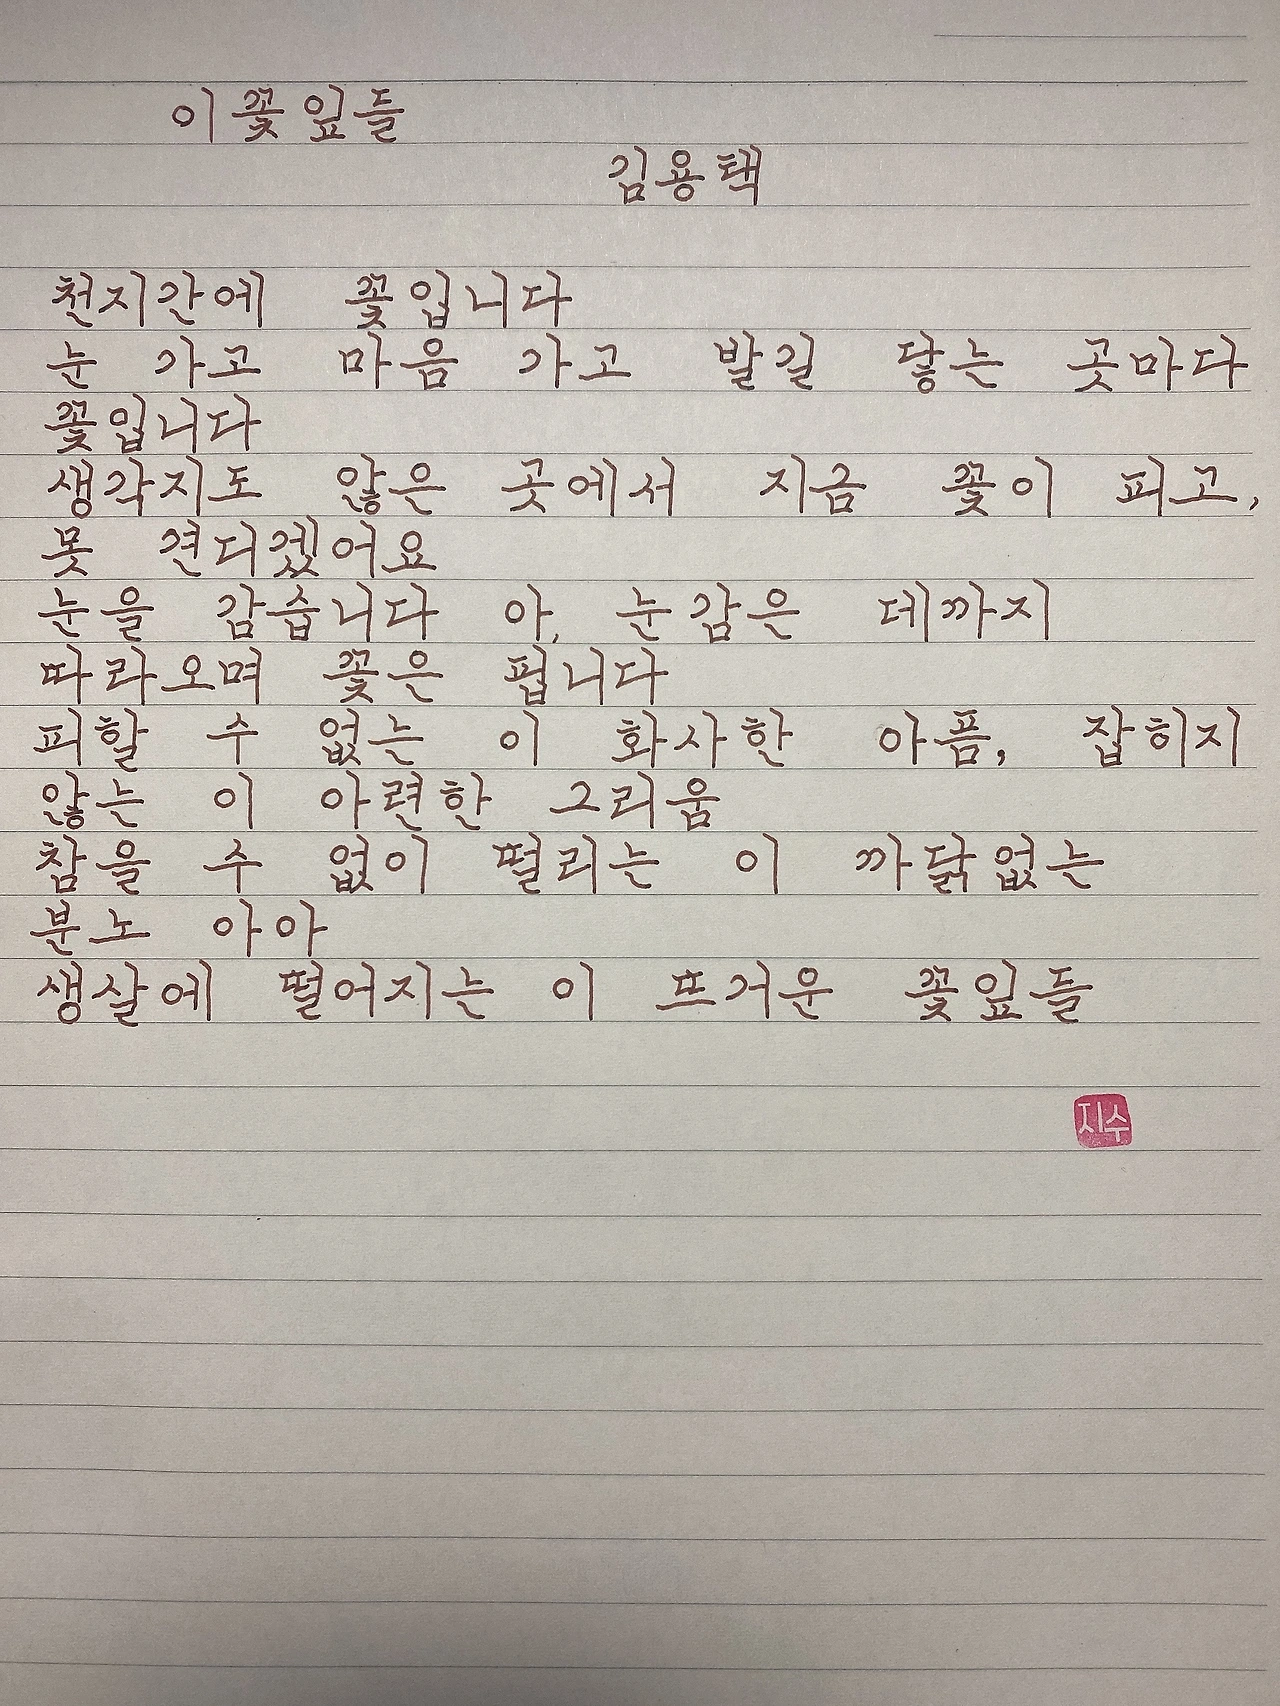 이 꽃잎들
김용택
천지간에 꽃입니다
눈 가고 마음 가고 발길 닿는 곳마다
꽃입니다
생각지도 않은 곳에서 지금 꽃이 피고,
못 견디겠어요
눈을 감습니다 아, 눈감은 데까지
따라오며 꽃은 핍니다
피할 수 없는 이 화사한 아픔, 잡히지
않는 이 아련한 그리움
참을 수 없이 떨리는 이 까닭없는
분노 아아
생살에 떨어지는 이 뜨거운 꽃잎들
지수